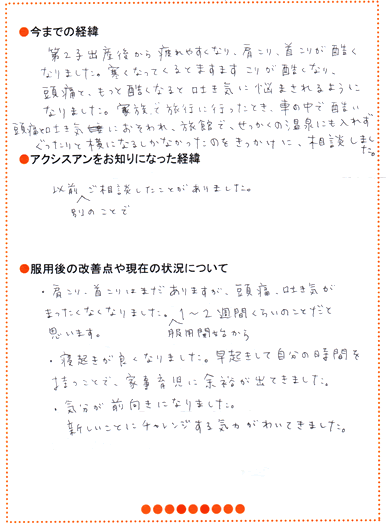 ●今までの経緯
第2子出産後から疲れやすくなり、肩こり、首こりが酷く
なりました。寒くなってくるとますますこりが酷くなり、
頭痛と、もっと酷くなると吐き気に悩まされるように
なりました。家族で旅行に行ったとき、車の中で酷い
頭痛と吐き気におそわれ、旅館で、せっかくの温泉にも入れず
ぐったりと横になるしかなかったのをきっかけに、相談しました。
●アクシスアンをお知りになった経緯
以前、ご相談したことがありました。
別のことで
●服用後の改善点や現在の状況について
・肩こり、首こりはまだありますが、頭痛、吐き気が
まったくなくなりました。1～2週間くらいのことだと
思います。 服用開始から
・寝起きが良くなりました。早起きして自分の時間を
持つことで、家事育児に余裕が出てきました。
・気分が前向きになりました。
新しいことにチャレンジする気力がわいてきました。